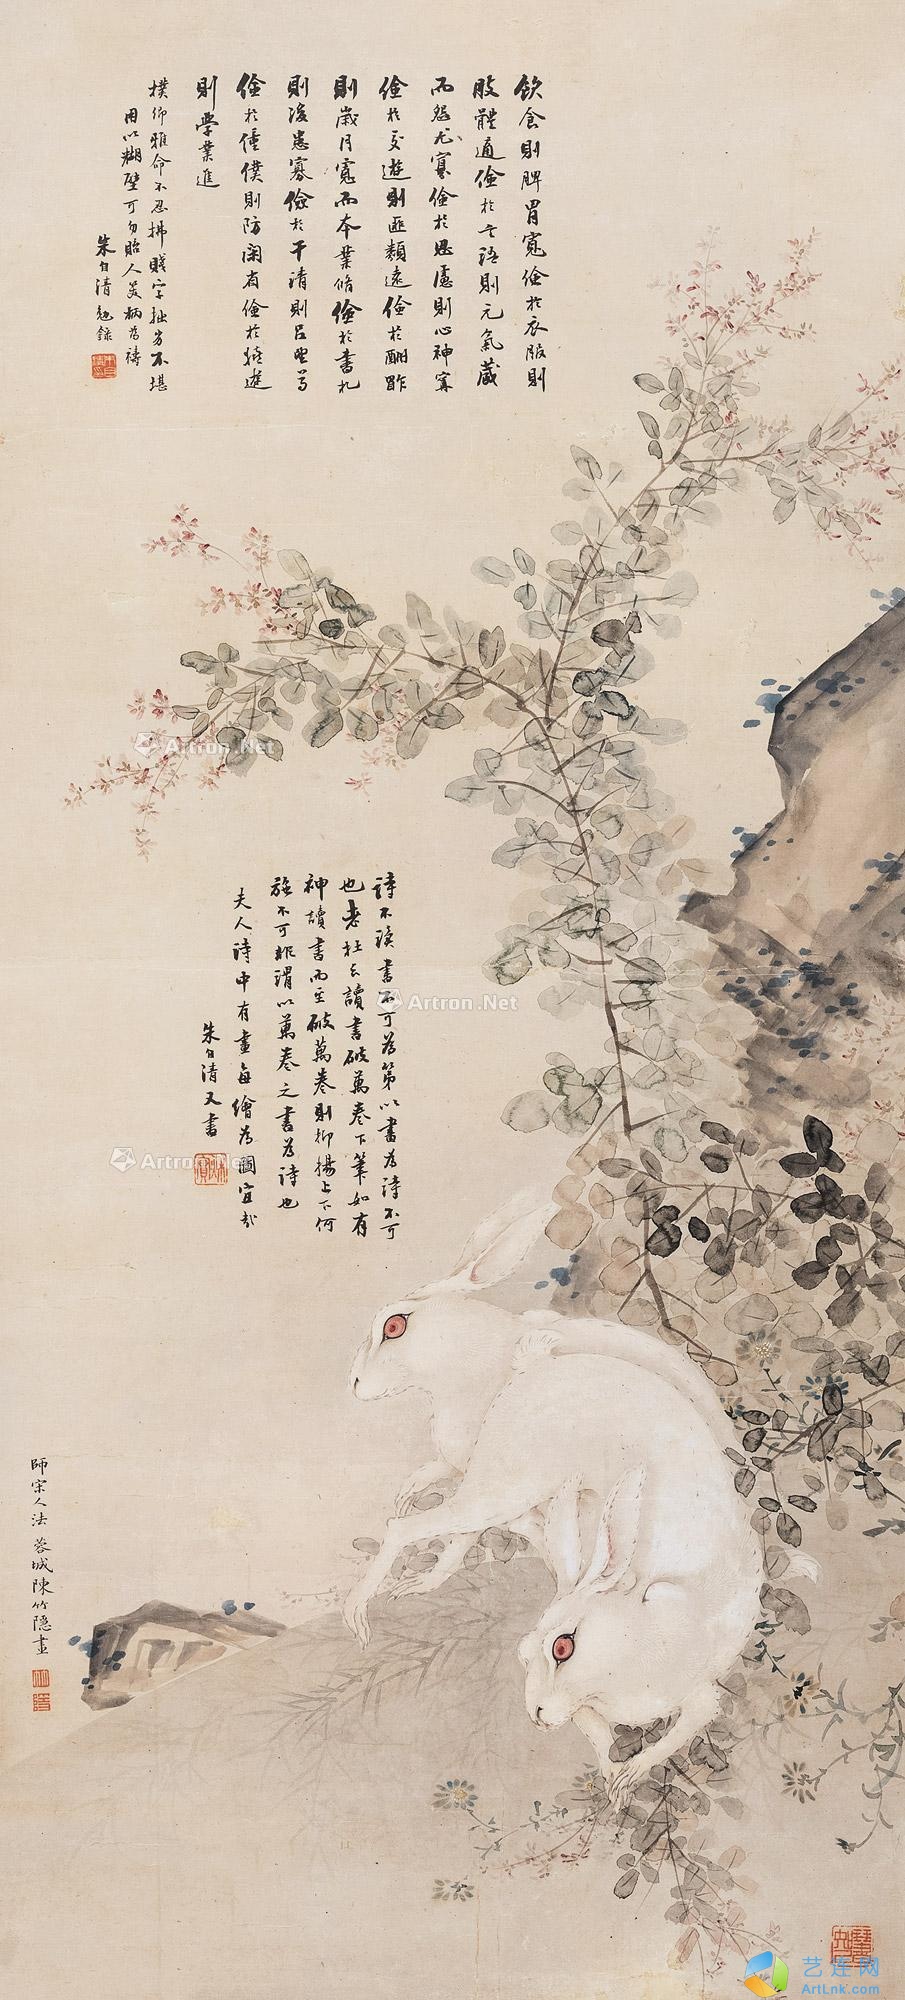 飲食則脾胃寬儉於衣服則
肢體適儉於言語則元氣藏
而怨尤寡儉於思慮則心神寧
儉於交遊則匪類遠儉於酬酢
則歲月寬而本業脩儉於書札
則後患寡儉於干請則品望尊
儉於僮僕則防閑省儉於嬉遊
則學業進
樸仰雅命不忍拂賤字拙劣不堪
用以糊壁可勿貽人笑柄為禱
朱自清勉錄
詩不須書不可為第以書為詩不可
也老杜云讀書破萬卷下筆如有
神讀書而至破萬卷則抑揚上下何
施不可非謂以萬卷之書為詩也
夫人詩中有畫每繪為圖宜哉
朱自清又書
師宋人法蓉城陳竹隱畫
Artron.Net
Artron.Net
Artron.Net
艺连网
ArtLnk.com